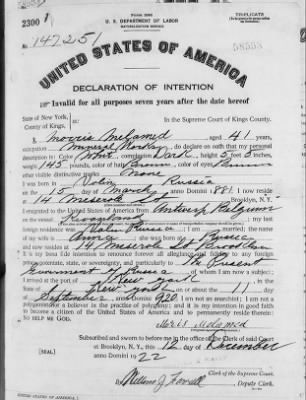 2300
FORM 2203
U. S. DEPARTMENT OF LABOR
NATURALIZATION SERVICE
TRIPLICATE
No. 147251
UNITED STATES OF AMERICA
DECLARATION OF INTENTION
Invalid for all purposes seven years after the date hereof
State of New York,
County of Kings, ss:
In the Supreme Court of Kings County.
I, Morris Melamed, aged 41 years,
occupation Mineral Worker, do declare on oath that my personal
description is: Color White, complexion Dark, height 5 feet 5 inches,
weight 145 pounds, color of hair Brown, color of eyes Brown
other visible distinctive marks None
I was born in Volin Russia
on the 15 day of March, anno Domini 1881; I now reside
at 14 Meserole St Brooklyn, N.Y.
I emigrated to the United States of America from Antwerp Belgium
on the vessel; my last
foreign residence was Volin Russia; I am married; the name
of my wife is Anna; she was born in Russia
and now resides at 14 Meserole St Brooklyn
It is my bona fide intention to renounce forever all allegiance and fidelity to any foreign
prince, potentate, state, or sovereignty, and particularly to The Present
Government of Russia, of whom I am now a subject;
I arrived at the port of New York, in the
State of New York, on or about the 11 day
of September, anno Domini 1920; I am not an anarchist; I am not a
polygamist nor a believer in the practice of polygamy; and it is my intention in good faith
to become a citizen of the United States of America and to permanently reside therein:
SO HELP ME GOD.
Subscribed and sworn to before me in the office of the Clerk of said Court
at Brooklyn, N.Y., this 12 day of December
anno Domini 1922
[SEAL]
Clerk of the Supreme Court.
By, Deputy Clerk.